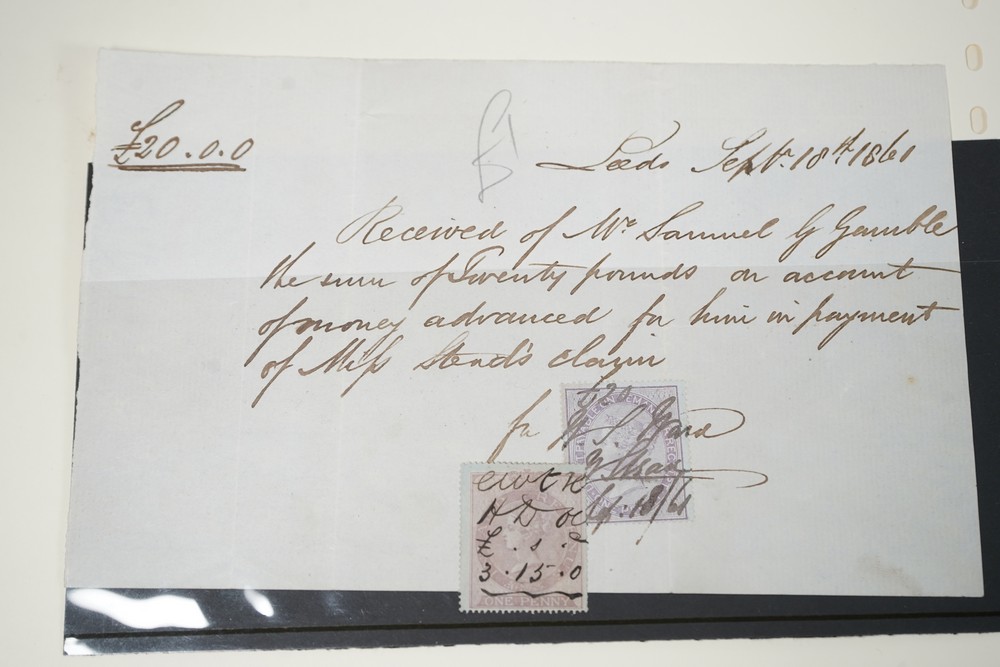 £20.0.0
£1
Leeds Sept. 18th 1861
Received of Mr Samuel G Gamble
the sum of Twenty pounds on account
of money advanced for him in payment
of Miss Stead's claim
for W. S. Ward
18/61
H D
£ . s .
3.15.0
ONE PENNY